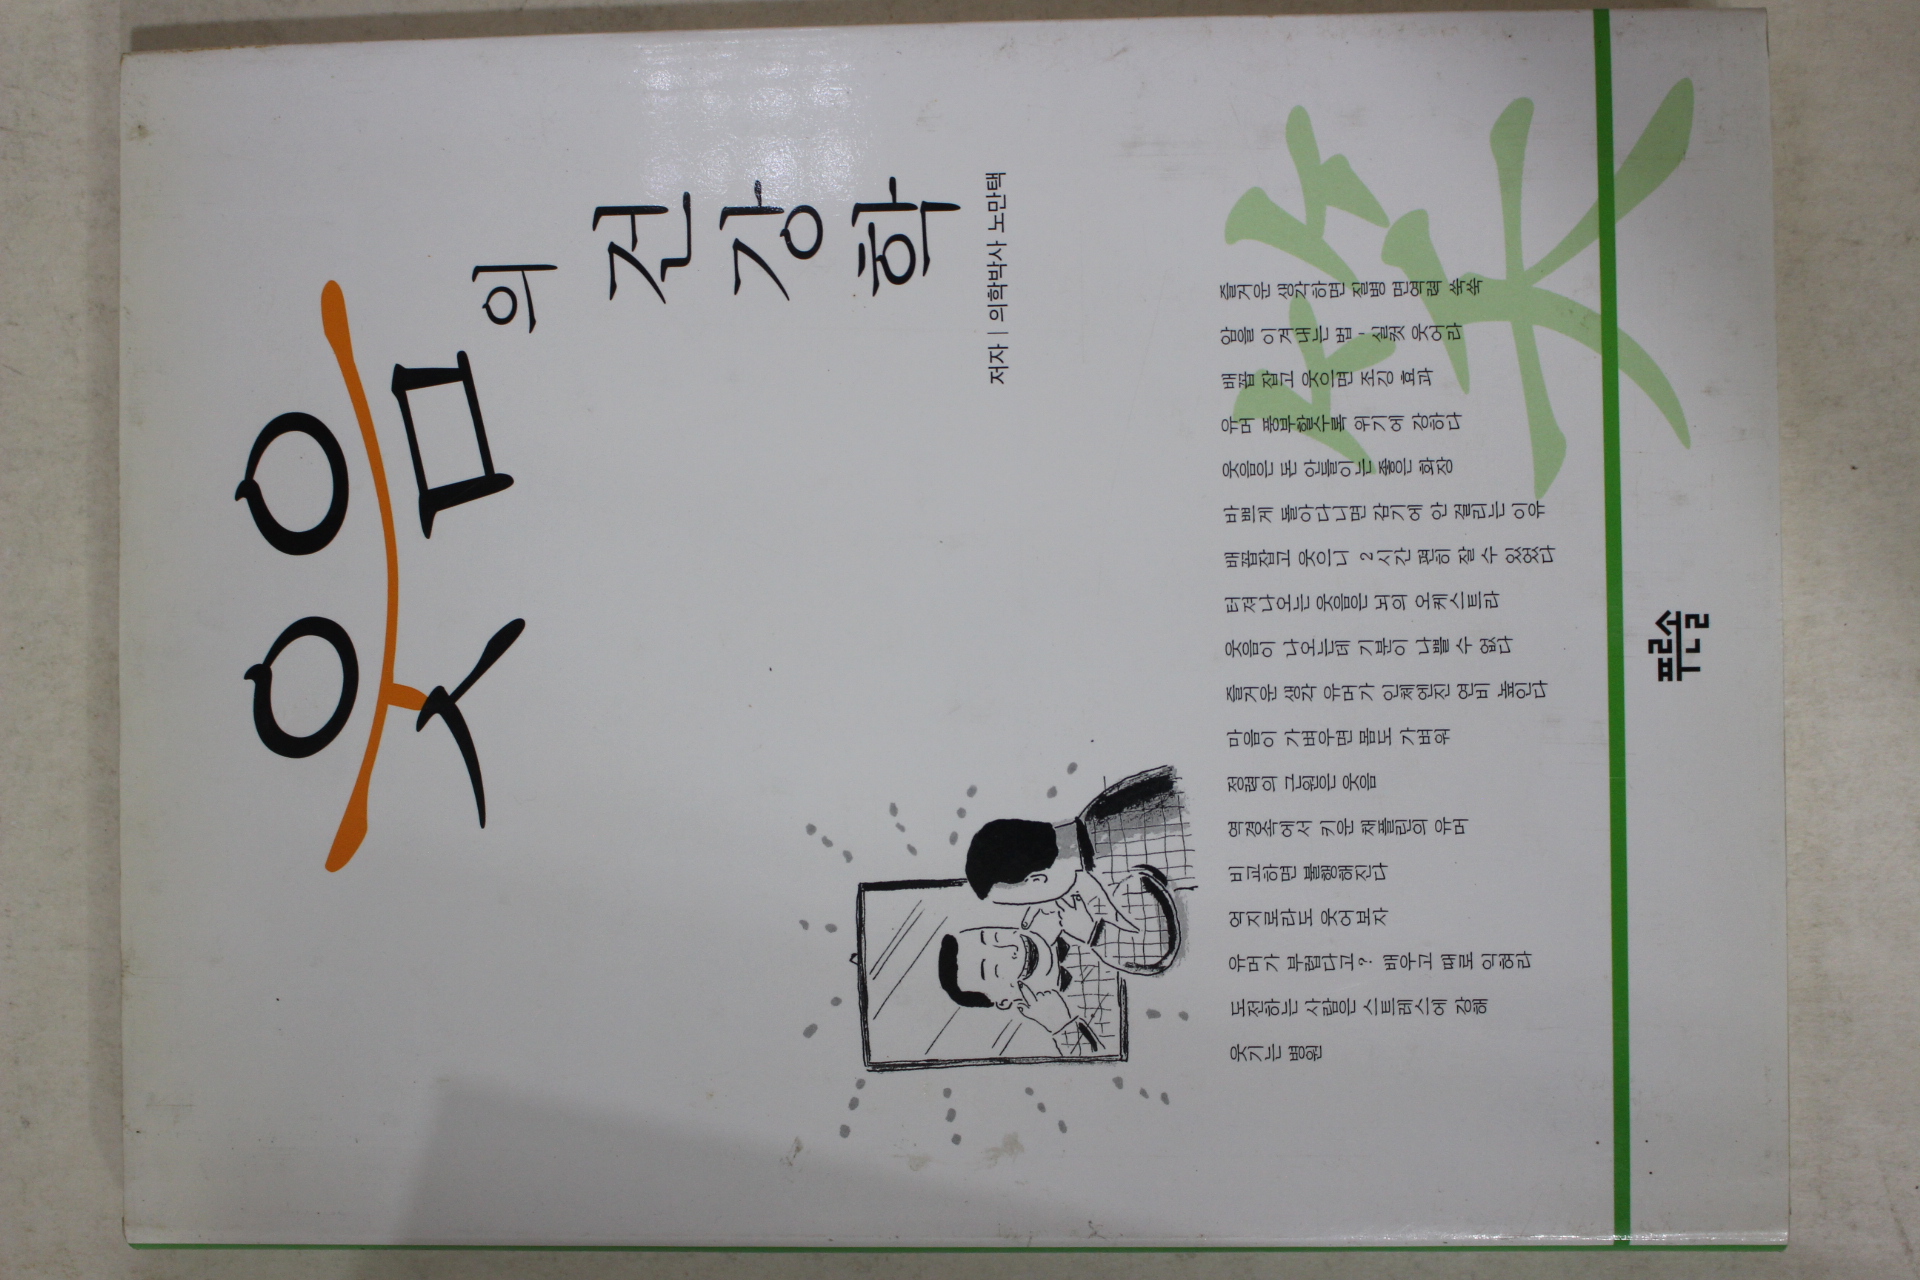 웃음의 건강학
저자 | 의학박사 노만택
笑
즐거운 생각하면 질병 면역력 쑥쑥
암을 이겨내는 법 - 실컷 웃어라
배꼽 잡고 웃으면 조깅 효과
유머 풍부할수록 위기에 강하다
웃음은 돈 안들이는 좋은 화장
바쁘게 돌아다니면 감기에 안 걸리는 이유
배꼽잡고 웃으니 2시간 편히 잘 수 있었다
터져나오는 웃음은 뇌의 오케스트라
웃음이 나오는데 기분이 나쁠 수 없다
즐거운 생각 유머가 인체엔진 연비 높인다
마음이 가벼우면 몸도 가벼워
정력의 근원은 웃음
역경속에서 키운 채플린의 유머
비교하면 불행해진다
억지로라도 웃어 보자
유머가 부럽다고? 배우고 때로 익혀라
도전하는 사람은 스트레스에 강해
웃기는 병원
푸른솔